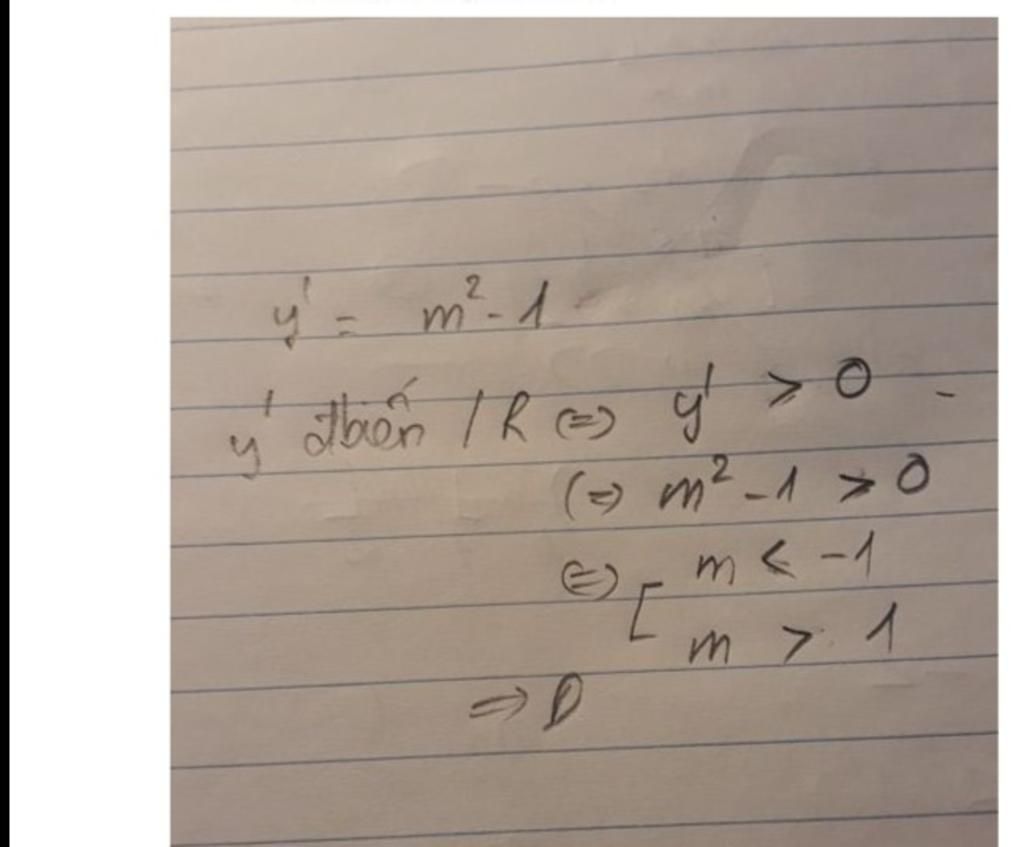 y' = m² - 1
y' đbiến / R (=) y' > 0
(=) m² - 1 > 0
(=) [ m < -1
m > 1
=> D